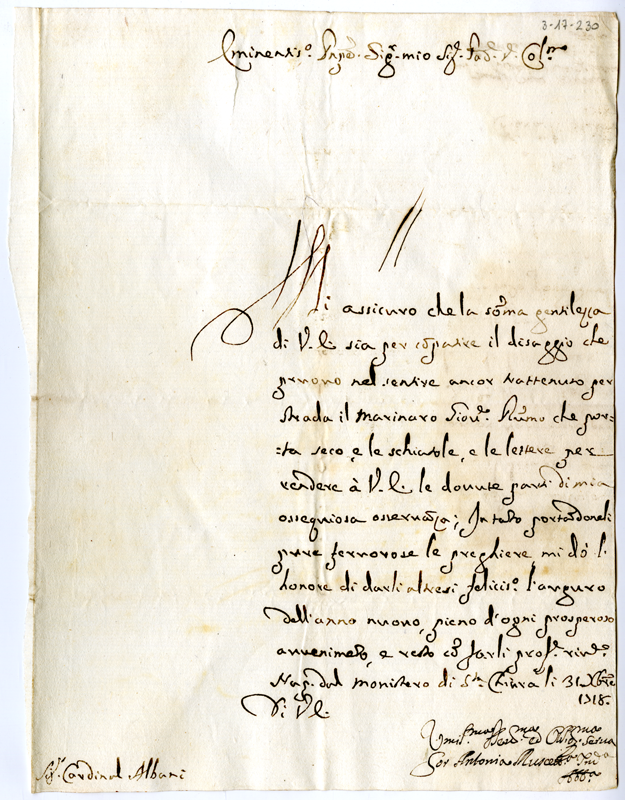 3-17-230
Eminentis.º Prĩpe. Sigr. mio Sigr. Pad. V. Col.mo
Mi assicuro che la som̃a gentilezza
di V. E. sia per cõpatire il disaggio che
pruovo nel sentire ancor trattenuto per
strada il marinaro Giov. che por=
=ta seco, e le schiavole, e le lettere per
rendere à V. E. le dovute parti di mia
ossequiosa osservãza; In tãto portãdoneli
pure fervorose le preghiere, mi dò l'
honore di darli altresi feliciss.º l'auguro
dell'anno nuovo, pieno d'ogni prosperoso
avvenimẽto, e resto cõ farli prof.
Nap. dal monistero di Sta. Chiara li 31 Xbre
1718.
Di V. E.
Umil.ma Dev.ma ed Oblig.ma Serva
Sor Antonia
Sigr. Cardinal Albani